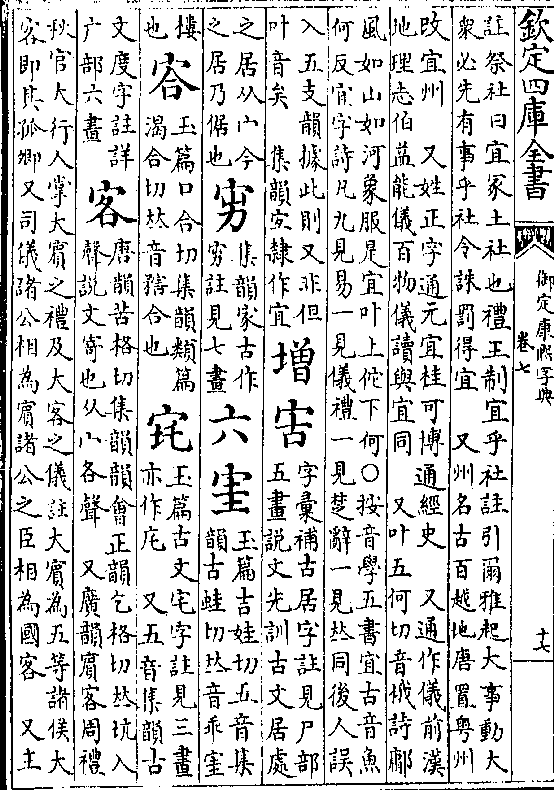 欽定四庫全書
御定康熙字典
卷七
十七
註祭社曰宜冢土社也禮王制宜乎社註引爾雅起大事動大
衆必先有事乎社令誅罰得宜 又州名古百越地唐置粤州
改宜州 又姓正字通元宜桂可博通經史 又通作儀前漢
地理志伯益能儀百物儀讀與宜同 又叶五何切音俄詩鄘
風如山如河象服是宜叶上佗下何○按音學五書宜古音魚
何反宜字詩凡九見易一見儀禮一見楚辭一見𠀤同後人誤
入五支韻據此則又非但
叶音矣 集韻宐隷作宜
增
𡧑
字彙補古居字註見尸部
五畫說文先訓古文居處
之居从宀今
之居乃倨也
集韻家古作
穷註見七畫
六
窐
玉篇吉娃切五音集
韻古蛙切𠀤音乖窐
樓
也
㝓
玉篇口合切集韻類篇
渴合切𠀤音㿣合也
玉篇古文宅字註見三畫
亦作㡯 又五音集韻古
文度字註詳
广部六畫
客
唐韻苦格切集韻韻會正韻乞格切𠀤坑入
聲說文寄也从宀各聲 又廣韻賔客周禮
秋官大行人掌大賔之禮及大客之儀註大賔為五等諸侯大
客即其孤卿又司儀諸公相為賔諸公之臣相為國客 又主